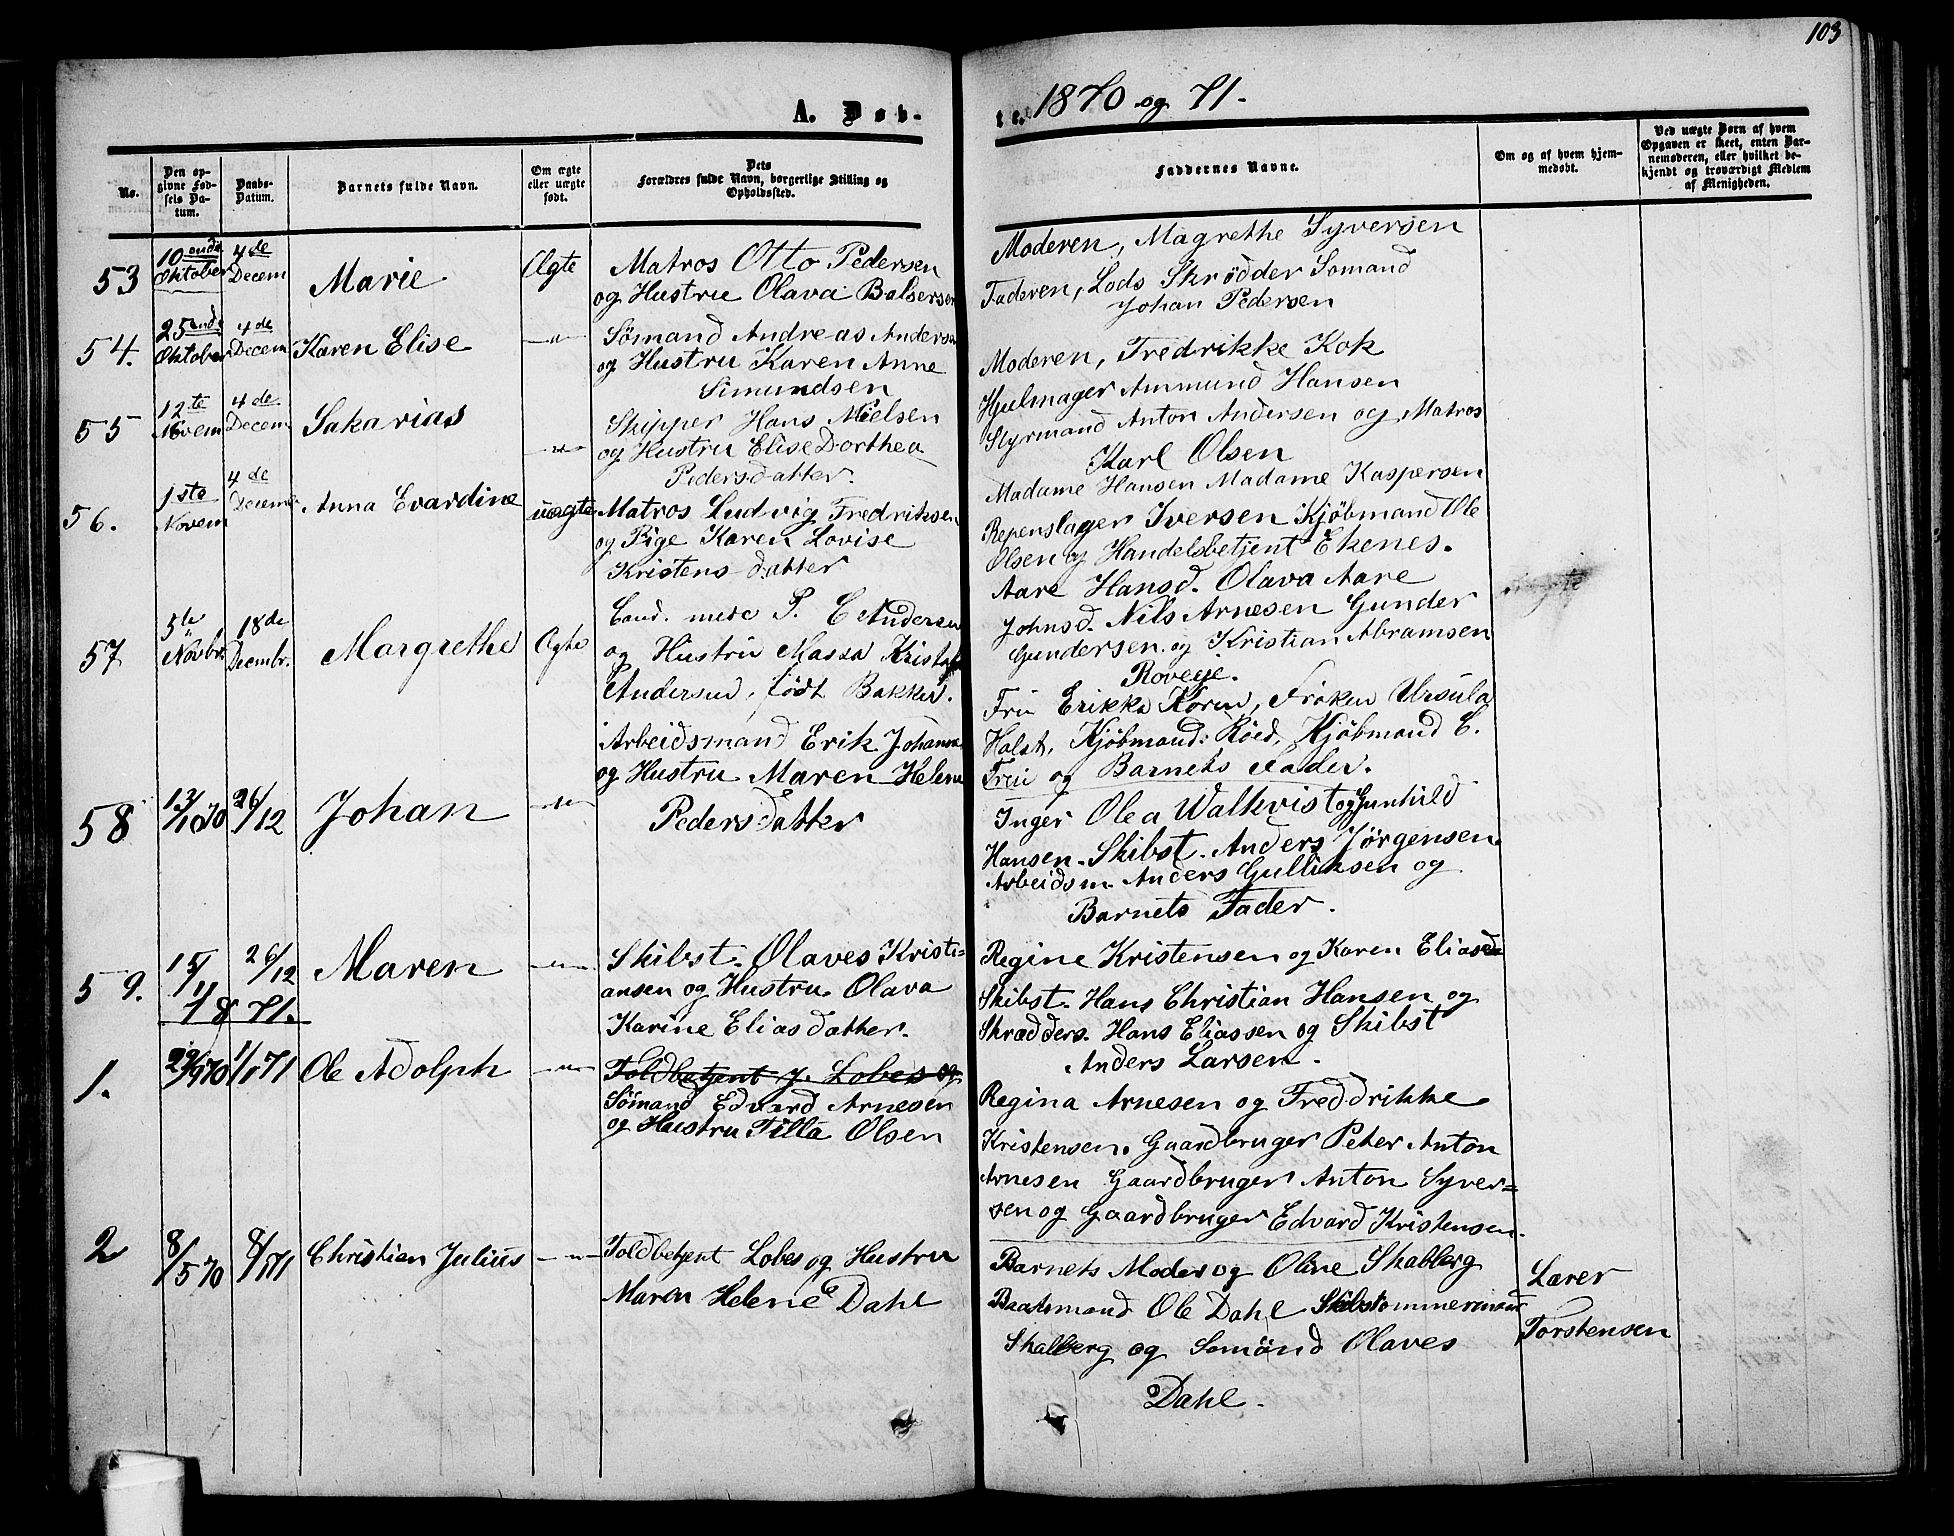 103
A. Døb-
te. 1870 og 71.
No.
Den opgivne Fødsels Datum.
Daabs-Datum.
Barnets fulde Navn.
Om ægte eller uægte født.
Dets Forældres fulde Navn, borgerlige Stilling og Opholdssted.
Faddernes Navne.
Om og af hvem hjemmedøbt.
Ved uægte Børn af hvem Opgaven er skeet, enten Barnemoderen, eller hvilket bekjendt og troværdigt Medlem af Menigheden.
53
10ende Oktober
4de Decem
Marie
Ægte
Matros Otto Pedersen
og Hustru Olava Balsersen
Moderen, Magrethe Syversen
Faderen, Lods Skrødder Somand
Johan Pedersen
54.
25ende Oktober
4de Decem
Karen Elise
—"—
Sømand Andreas Andersen
og Hustru Karen Anne
Simundsen
Moderen, Fredrikke Kok
Hjulmager Ammund Hansen
Styrmand Anton Andersen og Matros
Karl Olsen
55
12te Novem
4de Decem
Sakarias
—"—
Skipper Hans Nielsen
og Hustru Elise Dorthea
Pedersdatter.
Madame Hansen Madame Kaspersen
Repenslager Iversen Kjøbmand Ole
Olsen og Handelsbetjent Ekenes.
56.
1ste Novem
4de Decem
Anna Evardine
uægte
Matros Ludvig Fredriksen
og Pige Karen Lovise
Kristensdatter
Aare Hansd. Olava Aare
Johnsd. Nils Arnesen Gunder
Gundersen og Kristian Abramsen
Roveje.
57
5te Novbr.
18de Decembr.
Margrethe
Ægte
Cand. med. P. C. Andersen
og Hustru Massa Krist
Andersen, født Bakke.
Fru Erikka Koren, Frøken Ursula
Holst, Kjøbmand: Röed, Kjøbmand E.
Frei og Barnets Fader.
58
13/10 70
26/12
Johan
—"—
Arbeidsmand Erik Johann
og Hustru Maren Helene
Pedersdatter
Inger Olea Walkvist og Gunhild
Hansen. Skibst. Anders Jørgensen
Arbeidsm. Anders Gulliksen og
Barnets Fader.
59.
15/11
26/12
Maren
—"—
Skibst. Olaves Kristi=
ansen og Hustru Olava
Karine Eliasdatter.
Regine Kristensen og Karen Eliasd
Skibst. Hans Christian Hansen og
Skrædders. Hans Eliassen og Skibst
Anders Larsen.
18 71.
1.
29/9 70
1/1 71
Ole Adolph
—"—
Toldbetjent J. Lobes og
Sømand Edvard Arnesen
og Hustru Tilla Olsen
Regina Arnesen og Freddrikke
Kristensen. Gaardbruger Peter Anton
Arnesen Gaardbruger Anton Syver=
sen og Gaardbruger Edvard Kristensen.
2
8/5 70
8/1 71
Christian Julius
—"—
Toldbetjent Lobes og Hustru
Maren Helene Dahl
Barnets Moder og Oline Skalberg
Baatsmand Ole Dahl Skibstommermand
Skalberg og Somønd Olaves
Dahl.
Lærer
Torstensen